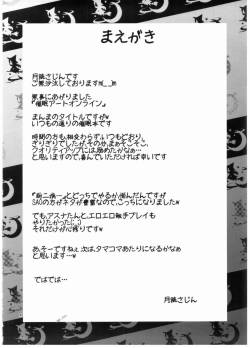 まえがき
月姫さじんです
ご無沙汰しておりますm(__)m
無事にあがりました
『催眠アートオンライン』
まんまのタイトルですがw
いつもの通りの催眠本です
時間の方も、相変わらず、いつもどおり、
ぎりぎりでしたが、その分、まあそこそこ、
クオリティアップには努めたかなぁ…
と思いますので、喜んでいただければ幸いです
とどっちでやるか、悩んだんですが
SAOの方がネタが豊富なので、こっちになりましたw
でも、アスナたんと、エロエロ触手プレイも
やりたかった(;;)
それだけが心残りです
あ、そーですねぇ 次は、タマコマあたりになるかなぁ
と思います…w
ではでは…
月姫さじん